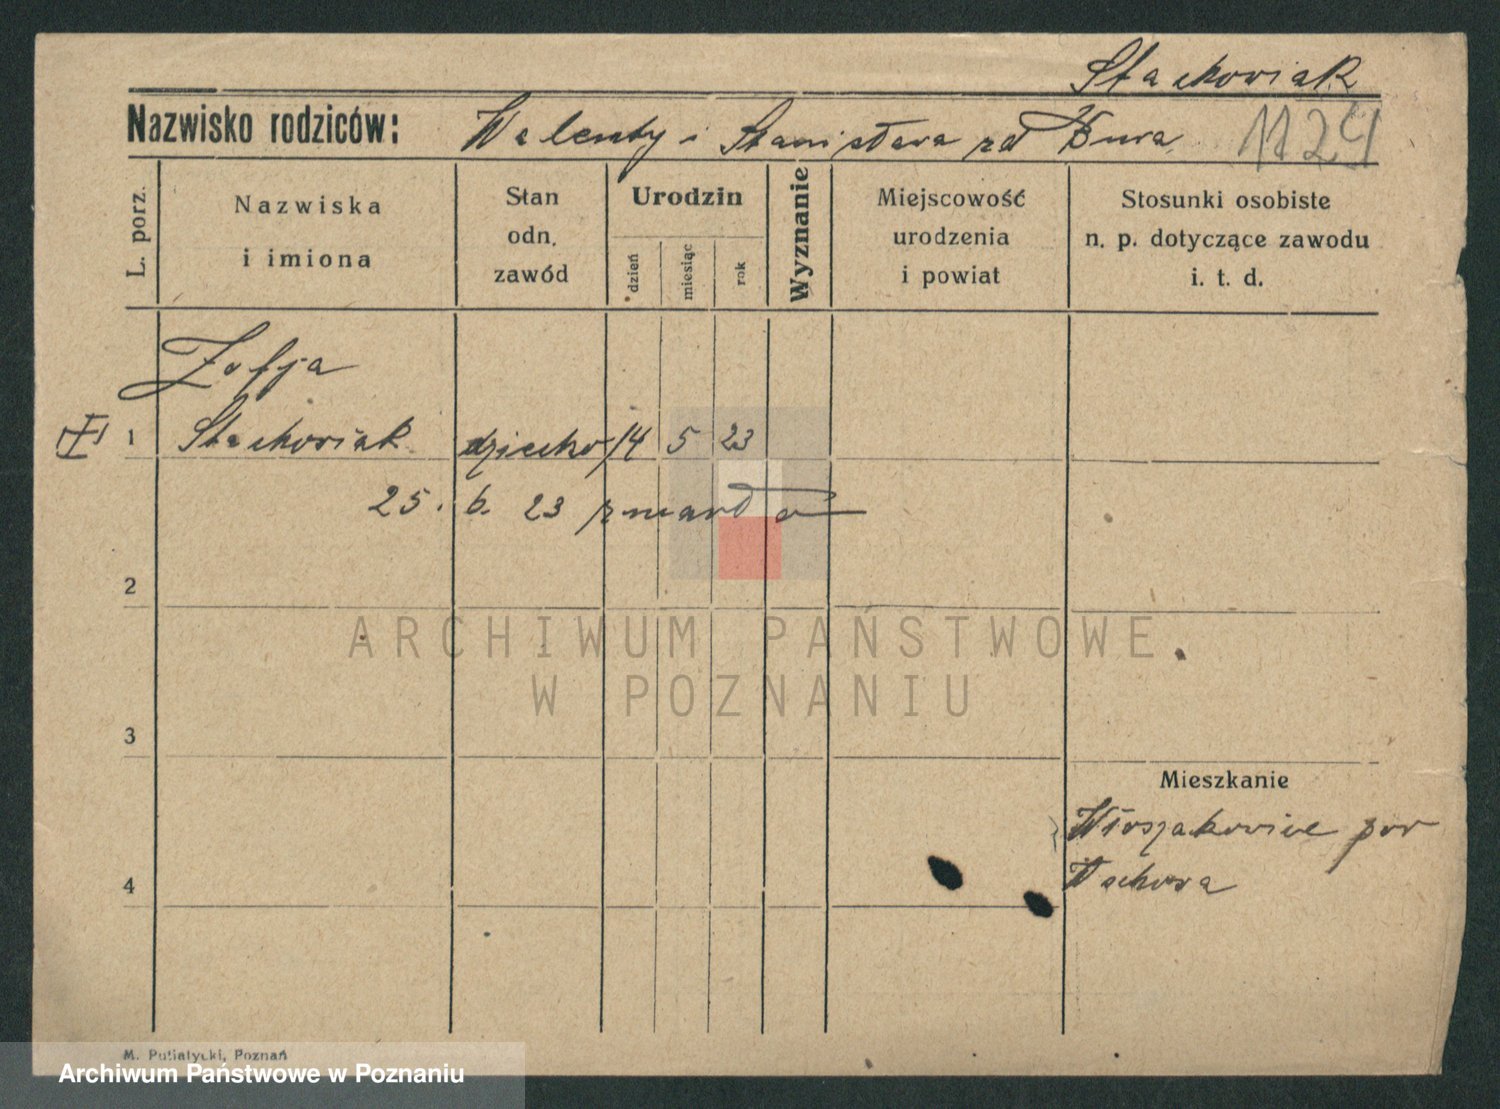 Stachowiak
Nazwisko rodziców: Walenty i Stanisława zd
1124
L. porz.
Nazwiska
i imiona
Stan
odn.
zawód
Urodzin
dzień
miesiąc
rok
Wyznanie
Miejscowość
urodzenia
i powiat
Stosunki osobiste
n. p. dotyczące zawodu
i. t. d.
Zofja
1 Stachowiak dziecko 14 5 23
25. 6. 23 zmarła
2
ARCHIWUM PAŃSTWOWE
W POZNANIU
3
Mieszkanie
Włoszakowice pow
Wschowa
4
M. Putiatycki, Poznań
Archiwum Państwowe w Poznaniu